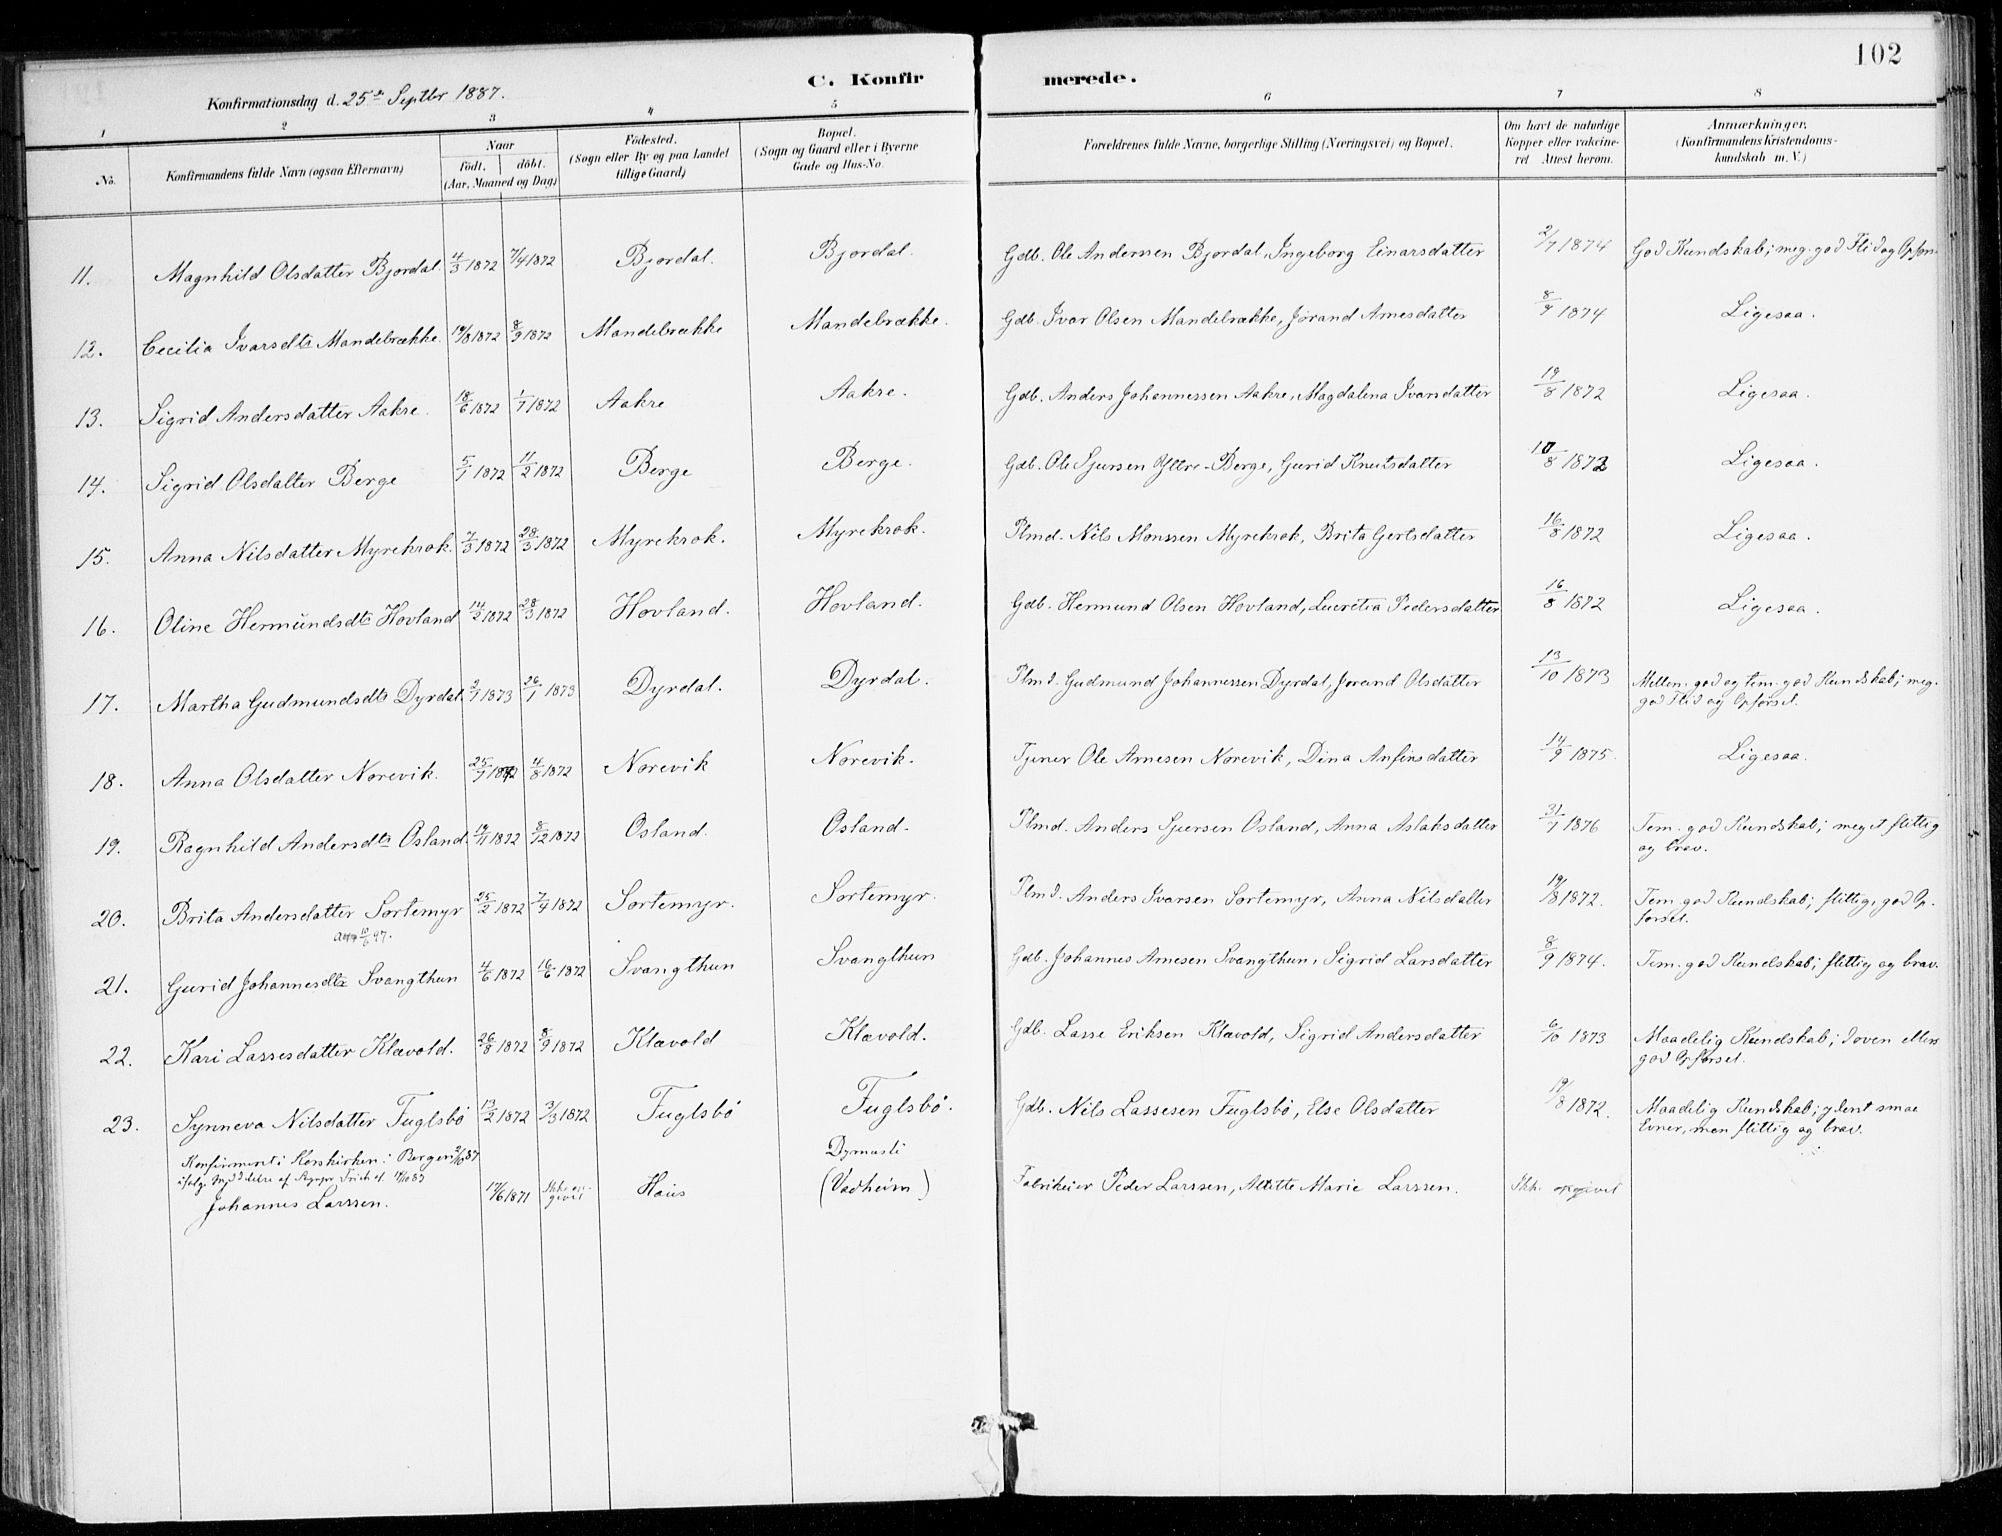 102
C. Konfirmerede.
Konfirmationsdag d. 25de Septbr 1887.
1 2 3 4 5 6 7 8
No. Konfirmandens fulde Navn (ogsaa Efternavn) Naar födt. döbt. (Aar, Maaned og Dag) Födested. (Sogn eller By og paa Landet tillige Gaard) Bopæl. (Sogn og Gaard eller i Byerne Gade og Hus-No. Forældrenes fulde Navne, borgerlige Stilling (Næringsvei) og Bopæl. Om havt de naturlige Kopper eller vakcineret Attest herom. Anmærkninger. (Konfirmandens Kristendomskundskab m. V.)
11. Magnhild Olsdatter Bjordal 4/3 1872 7/4 1872 Bjordal. Bjordal. Gdb. Ole Andersen Bjordal, Ingeborg Einarsdatter 2/7 1874 God Kundskab; meg. god Flid og Opførs.
12. Cecilia Ivarsdtr Mandebrække 19/8 1872 8/9 1872 Mandebrække Mandebrække. Gdb. Ivar Olsen Mandebrække, Jørand Arnesdatter 8/9 1874 Ligesaa.
13. Sigrid Andersdatter Aakre. 18/6 1872 1/7 1872 Aakre Aakre. Gdb. Anders Johannessen Aakre, Magdalena Ivarsdatter 19/8 1872 Ligesaa.
14. Sigrid Olsdatter Berge 5/1 1872 11/2 1872 Berge Berge. Gdb. Ole Sjursen Yttre-Berge, Gurid Knutsdatter /8 1872 Ligesaa.
15. Anna Nilsdatter Myrekrok. 7/3 1872 28/3 1872 Myrekrok. Myrekrok. Plmd. Nils Monssen Myrekrok, Brita Gertsdatter 16/8 1872 Ligesaa.
16. Oline Hermundsdtr Hovland 14/2 1872 28/3 1872 Hovland. Hovland. Gdb. Hermund Olsen Hovland, Lucretia Pedersdatter 16/8 1872 Ligesaa.
17. Martha Gudmundsdtr Dyrdal 2/1 1873 26/1 1873 Dyrdal. Dyrdal. Plmd. Gudmund Johannessen Dyrdal, Jorand Olsdatter 13/10 1873 Mellem god og tem. god Kundskab; meg. god Flid og Opførsel.
18. Anna Olsdatter Norevik. 25/7 1872 4/8 1872 Norevik Norevik. Tjener Ole Arnesen Norevik, Dina Anfinsdatter 14/9 1875. Ligesaa.
19. Ragnhild Andersdtr Osland. 19/11 1872 8/12 1872 Osland. Osland. Plmd. Anders Sjursen Osland, Anna Aslaksdatter 31/7 1876 Tem. god Kundskab; meget flittig og brav.
20. Brita Andersdatter Sortemyr 25/2 1872 7/4 1872 Sortemyr. Sortemyr. Plmd. Anders Ivarsen Sortemyr, Anna Nilsdatter 19/8 1872. Tem. god Kundskab; flittig, god Opførsel.
10/6 97.
21. Gurid Johannesdtr Svangthun 4/6 1872 16/6 1872 Svangthun Svangthun Gdb. Johannes Arnesen Svangthun, Sigrid Larsdatter 8/9 1874. Tem. god Kundskab; flittig og brav.
22. Kari Lassesdatter Klævold. 26/8 1872 8/9 1872 Klævold Klævold. Gdb. Lasse Eriksen Klævold, Sigrid Andersdatter 6/10 1873 Maadelig Kundskab; doven ellers god Opførsel.
23. Synneva Nilsdatter Fuglsbö 13/2 1872 3/3 1872 Fuglsbö Fuglsbö. Gdb. Nils Lassesen Fuglsbö, Else Olsdatter 19/8 1872. Maadelig Kundskab; ydent smaa Evner, men flittig og brav.
Konfirmeret i Korskirken i Bergen 2/10 87
ifølge Meddelelse af
Johannes Larssen. 17/6 1871 Ikke opgivet Haus Dymasli (Vadheim) Fabrikeier Peder Larssen, Marie Larssen. Ikk. opgivet